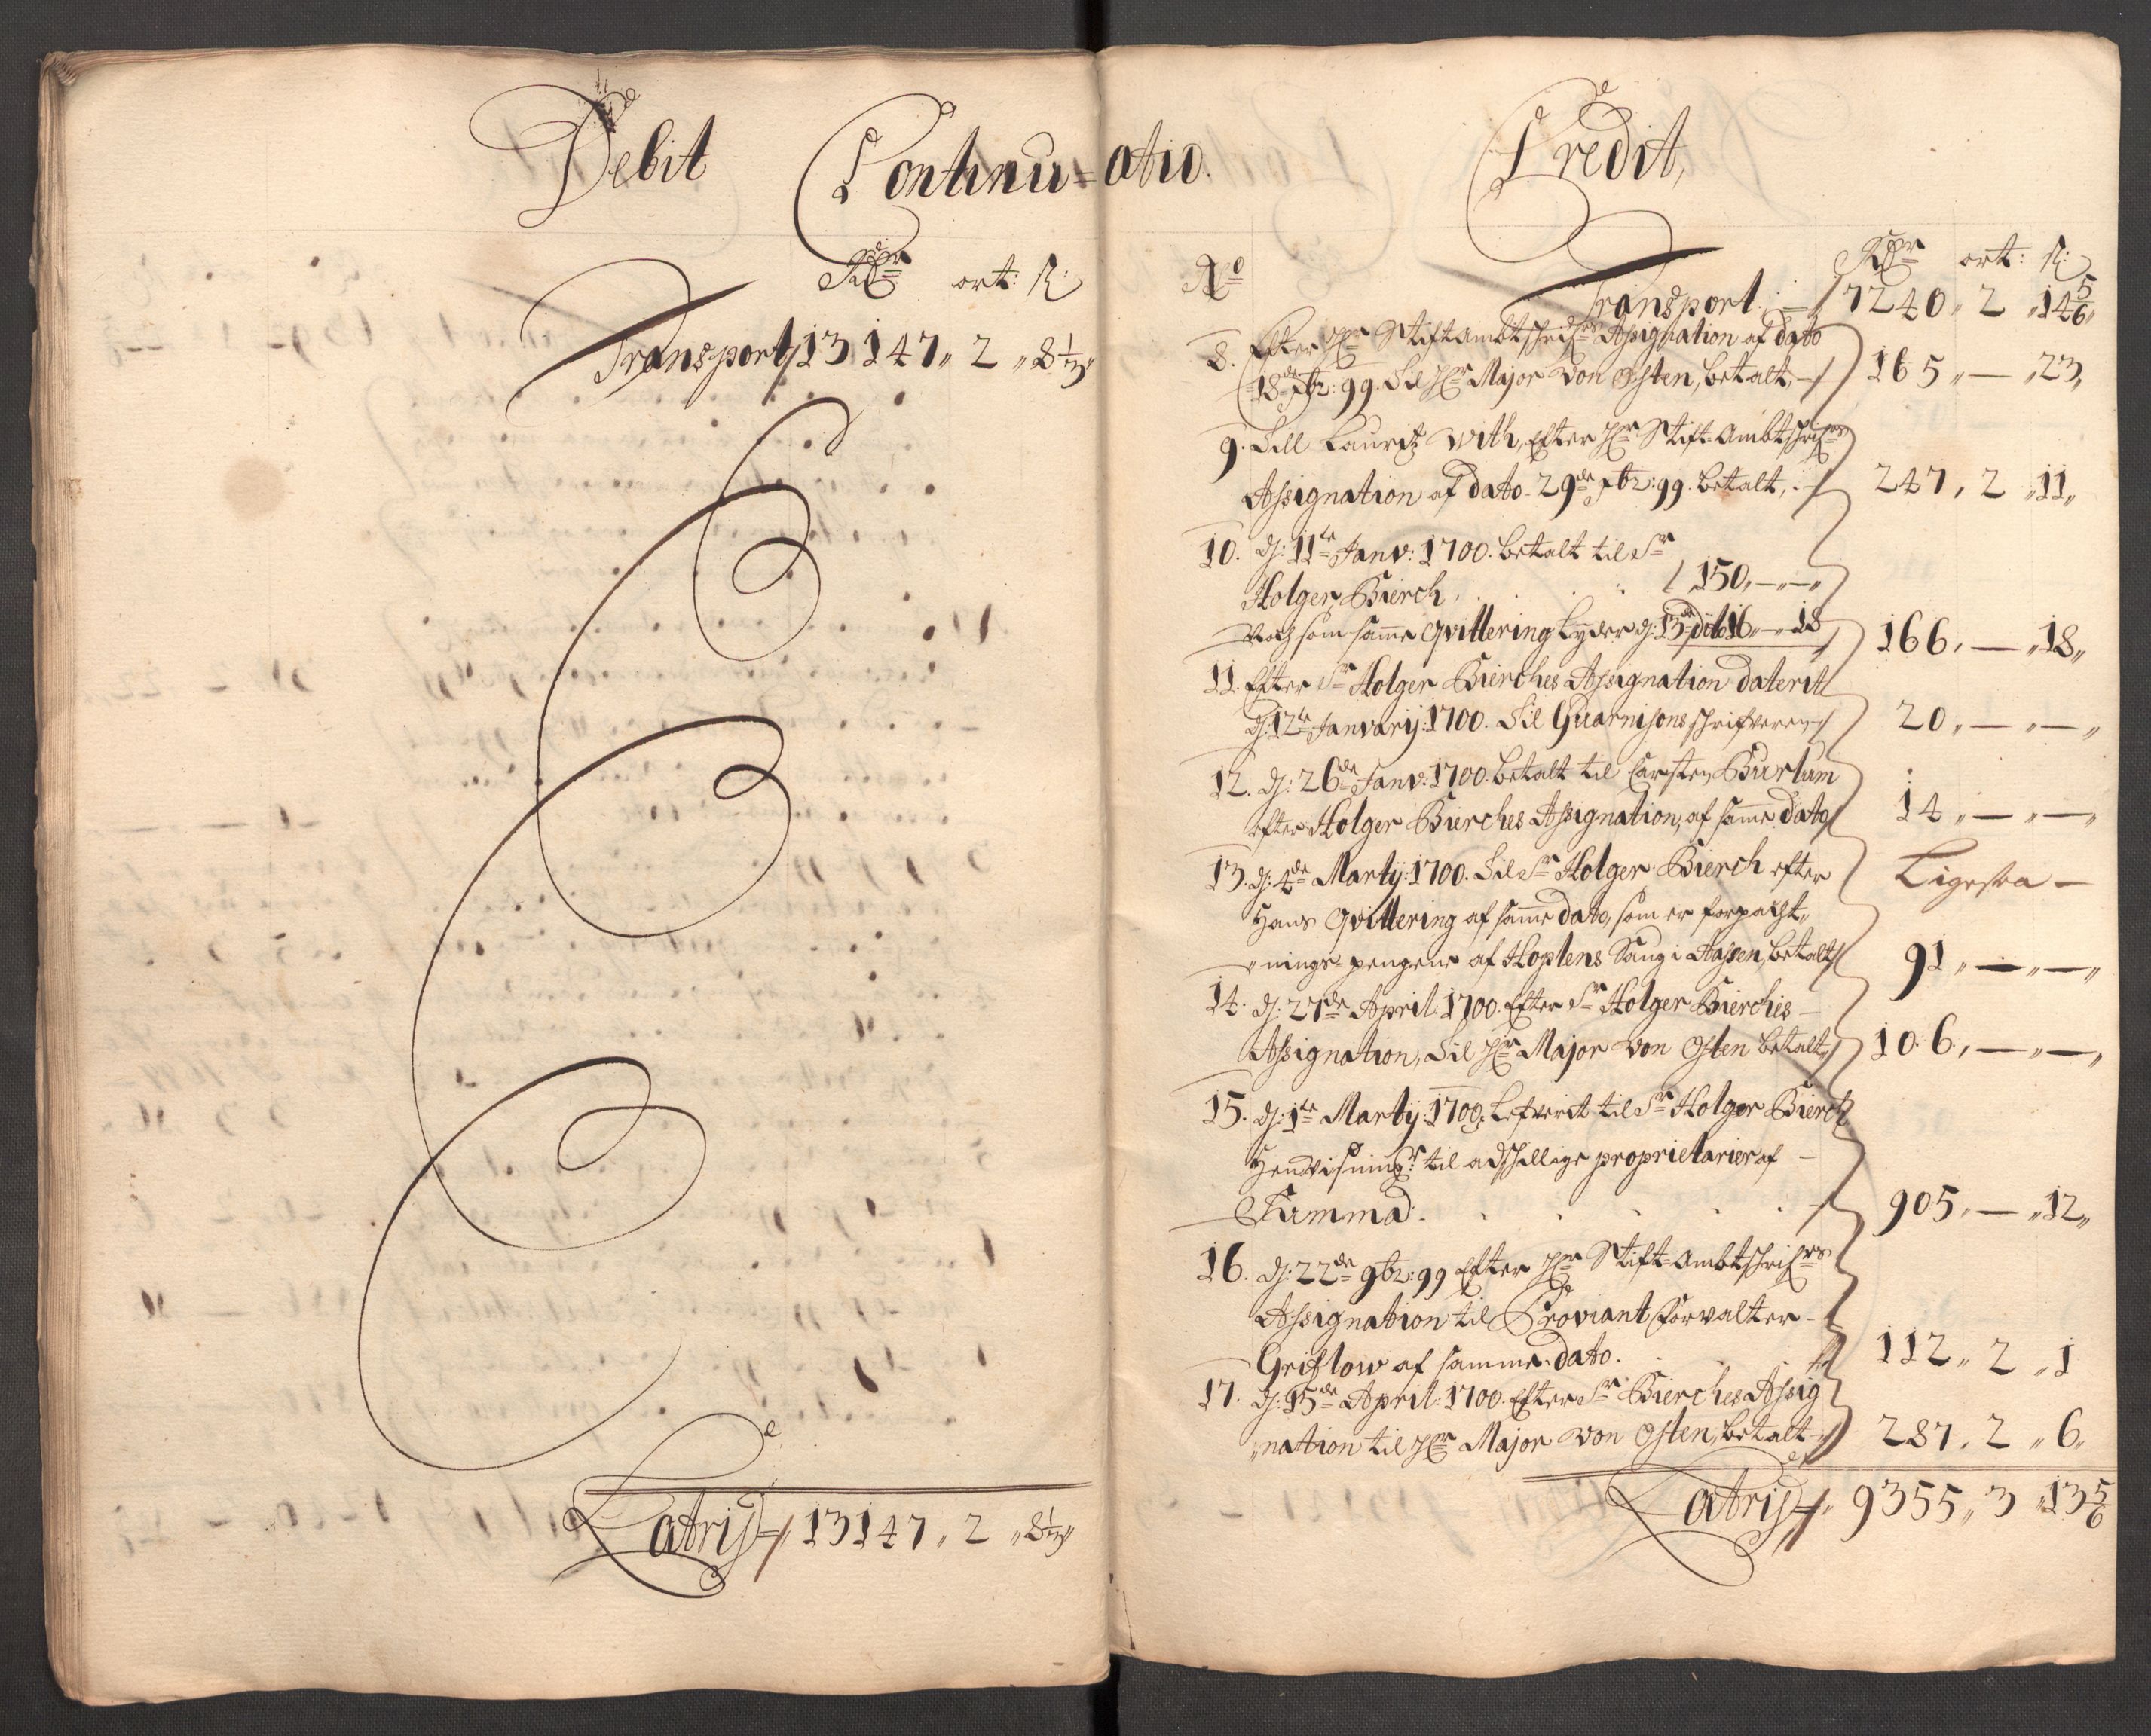 Debit Continu=
Rdr ort: ß:
Transport 13147„ 2 „8⅓„
Latris 13147„ 2 „8⅓„
atio. Credit,
No Rdr ort: ß:
Transport. 7240„ 2 „14⅚„
8. Efter Hr Stiftambtschrifrs Assignation af dato
18de 7br: 99. Til Hr Major von Osten, betalt, 165„ — „23„
9. Till Lauritz With, Efter Hr Stift-Ambtschrifrs
Assignation af dato 29de 7br: 99. betalt, 247, 2 „11„
10. d: 11te Janv: 1700. betalt til Sr
Holger Bierch. 150„—„—„
Noch som samme Qvittering Lyder d: 13de dito 16„—„18 166, — „18„
11. Efter Sr Holger Bierches Assignation daterit
d: 12te Janvarij: 1700. Til Guarnisons schrifveren 20, — „ — „
12. d: 26de Janv: 1700. betalt til Carsten Burlum
efter Holger Bierches Assignation, af samme dato 14„ — „ — „
13. d: 4de Martij: 1700. Til Sr Holger Bierch efter Ligesaa —
Hans Qvittering af samme dato, som er forpacht„
„nings-pengene af Hoplens Saug i Aasen, betalt 91„ — „ — „
14. d: 27de April: 1700. Efter Sr Holger Bierches
Assignation, Til Hr Major von Osten betalt 106, — „ — „
15. d: 1te Martij: 1700. Lefverit til Sr Holger Bierch
Henviisningr til adschellige proprietarier af
Summa. 905, — „12„
16. d: 22de 9br: 99 Efter Hr Stift-Ambtschrifrs
Assignation til Proviant forvalter
Griflow af samme dato. 112„ 2 „1
17. d: 15de April: 1700. Efter Sr Bierches Assig
„nation til Hr Major von Osten, betalt 287, 2 „6„
Latris 9355„ 3 „13⅚